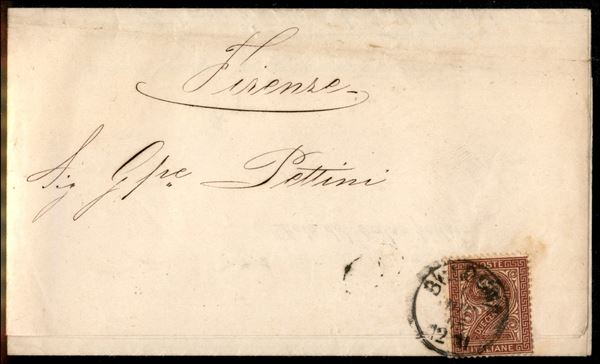 Firenze
Sig Gpe Pettini
POSTE
ITALIANE